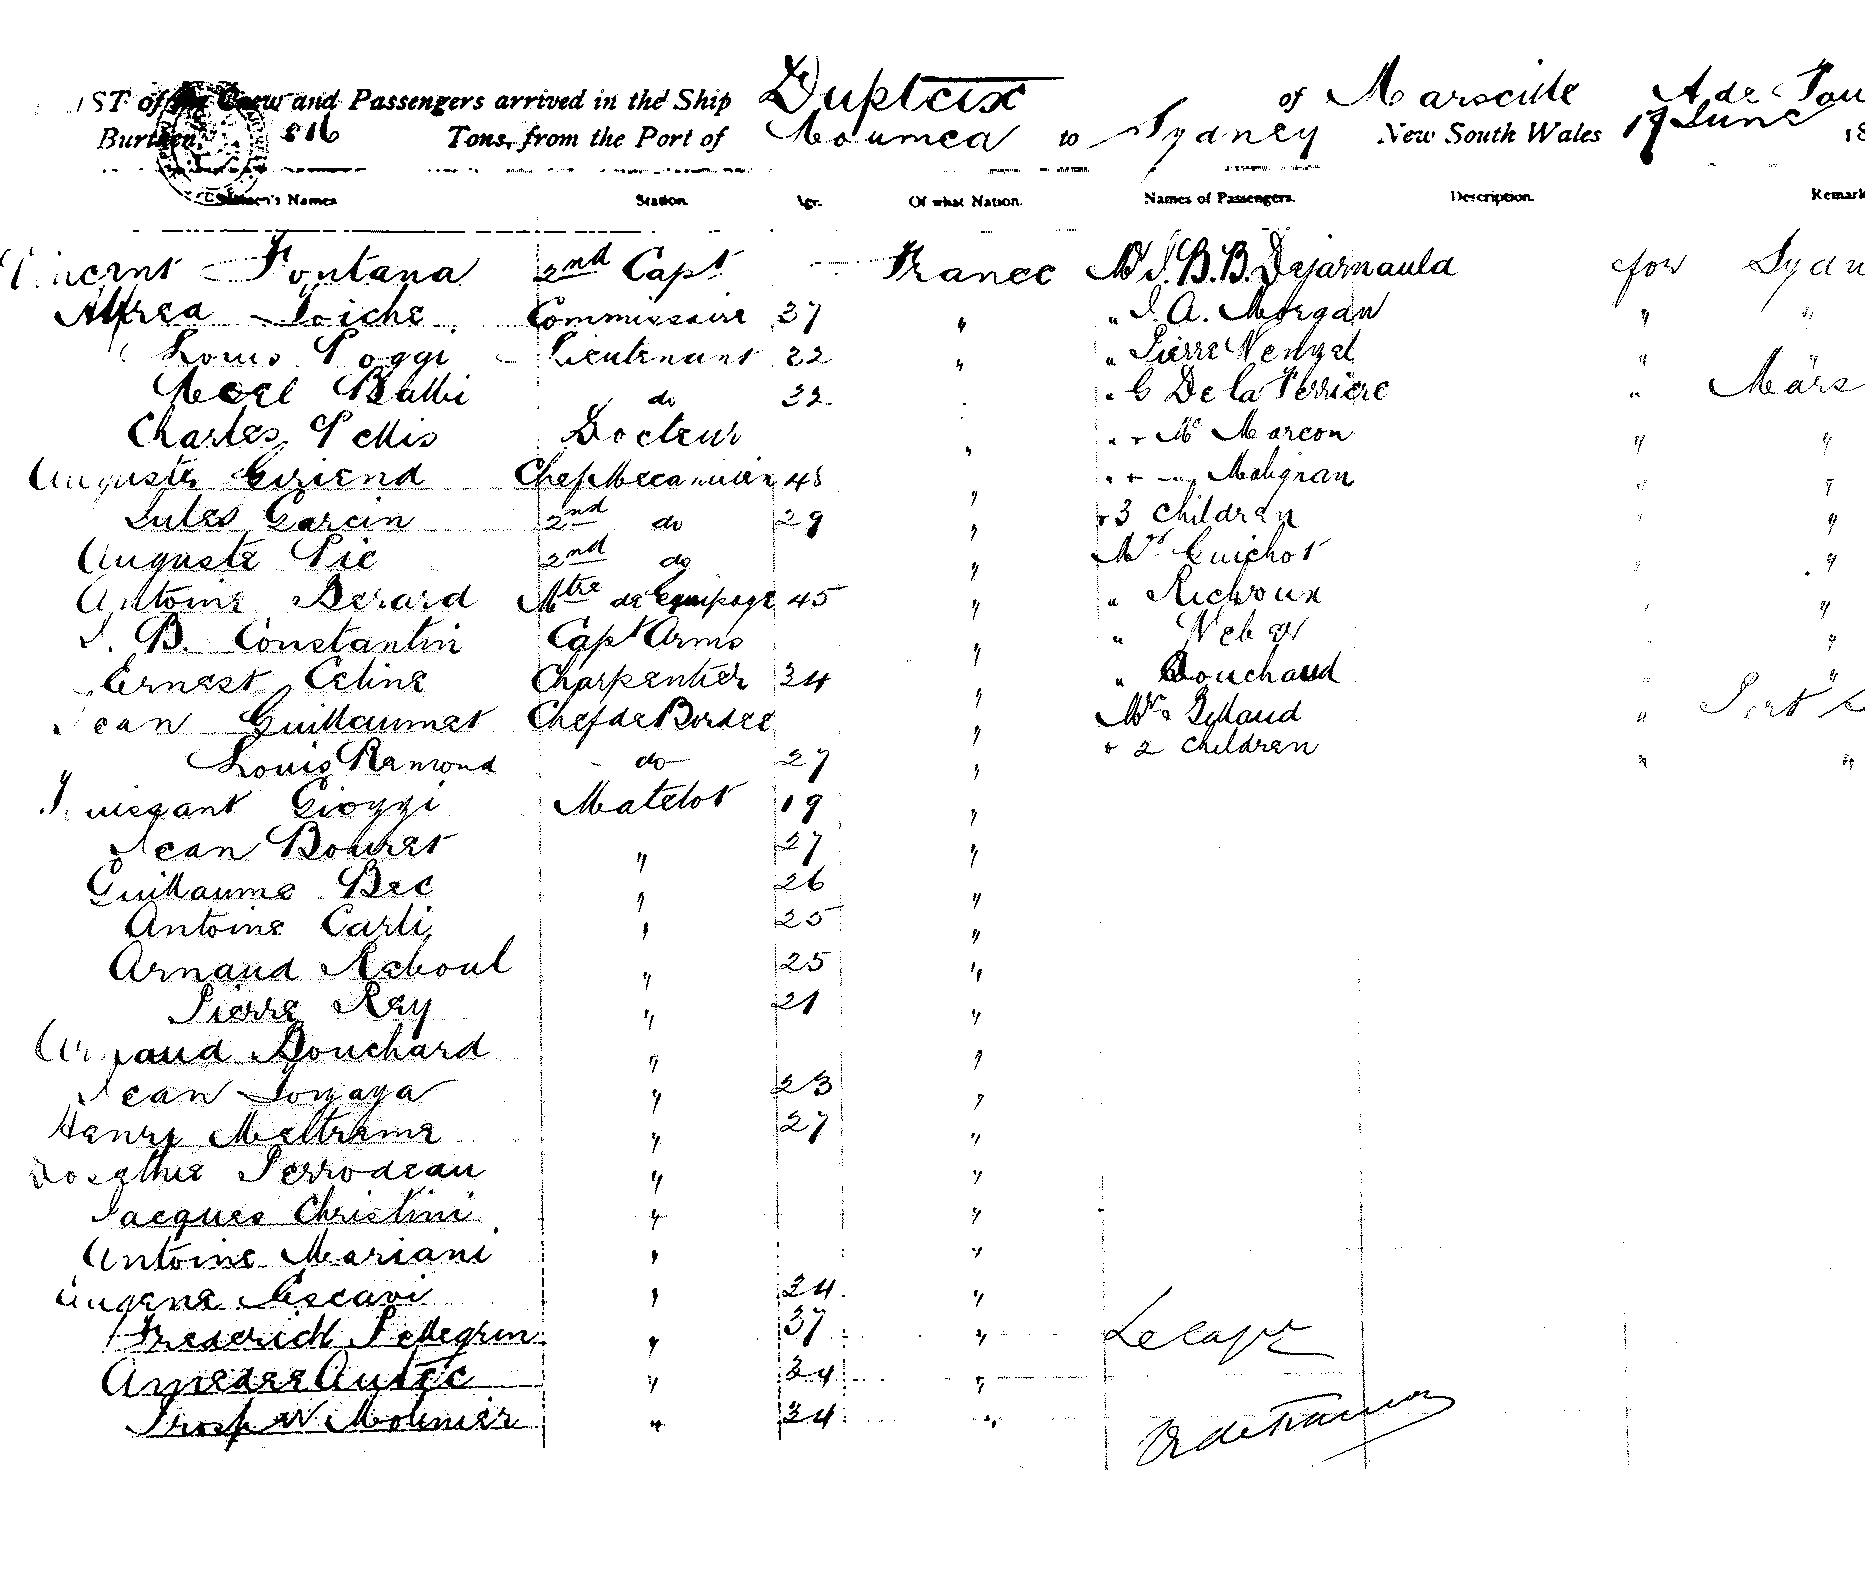 LIST of the Crew and Passengers arrived in the Ship Dupleix of Marseille A. de
Burthen 816 Tons, from the Port of Noumea to Sydney New South Wales 17 June 18
Seamen's Names Station. Age. Of what Nation. Names of Passengers. Description. Remark
Vincent Fontana 2nd Capt France Mr J. B. B. Dejarnauld for Sydn
Alfred Loiche Commissaire 37 " " J. A. Morgan " "
Louis Poggi Lieutenant 22 " " Pierre Wenzel " "
Noel Balbi do 32 " G De la Perriere " Mars
Charles Pellis Docteur " " " Mr Marcon " "
Auguste Giriend Chef Mecanicien 48 " " " " Malignan " "
Jules Garcin 2nd do 29 " + 3 Children "
Auguste Pic 2nd do " Mrs Guichot " "
Antoine Berard Mtre de Equipage 45 " " Richoux " "
J. B. Constantin Capt Arms " " Weber "
Ernest Celine Charpentier 34 " " Bouchard "
Jean Guillaumet Chef de Bordee " Mrs Gillaud " Port
Louis Ramond do 27 " + 2 Children " "
Gioggi Matelot 19 "
Jean Bouret " 27 "
Guillaume Bec " 26 "
Antoine Carli " 25 "
Arnaud Reboul " 25 "
Pierre Rey " 21 "
Arnaud Bouchard " "
Jean Lozaya " 23 "
Henri Meltreme " 27 "
Perrodeau " "
Jacques Christini " "
Antoine Mariani " "
Eugene Escavi " 34 "
Frederick Pellegrin " 37 " Le capt
Amedee Autec " 34 "
Prosper Molinier " 34 "